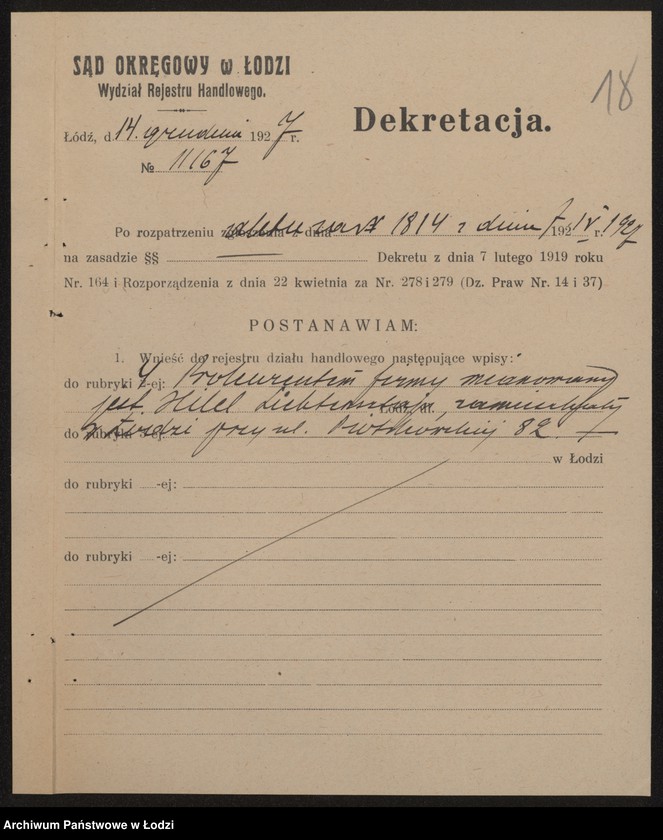 SĄD OKRĘGOWY w ŁODZI
Wydział Rejestru Handlowego.
18
Dekretacja.
Łódź, d. 14. grudnia 1927 r.
№ 11167
Po rozpatrzeniu 1814 z dnia 7 192 IV r. 1927
na zasadzie §§ Dekretu z dnia 7 lutego 1919 roku
Nr. 164 i Rozporządzenia z dnia 22 kwietnia za Nr. 278 i 279 (Dz. Praw Nr. 14 i 37)
POSTANAWIAM:
1. Wnieść do rejestru działu handlowego następujące wpisy:
do rubryki 4-ej: Prokurentem firmy mianowany
jest Hilel Lichtensztajn, zamieszkały
w Łodzi przy ul. Piotrkowskiej 82.
w Łodzi
do rubryki -ej:
do rubryki -ej:
Archiwum Państwowe w Łodzi